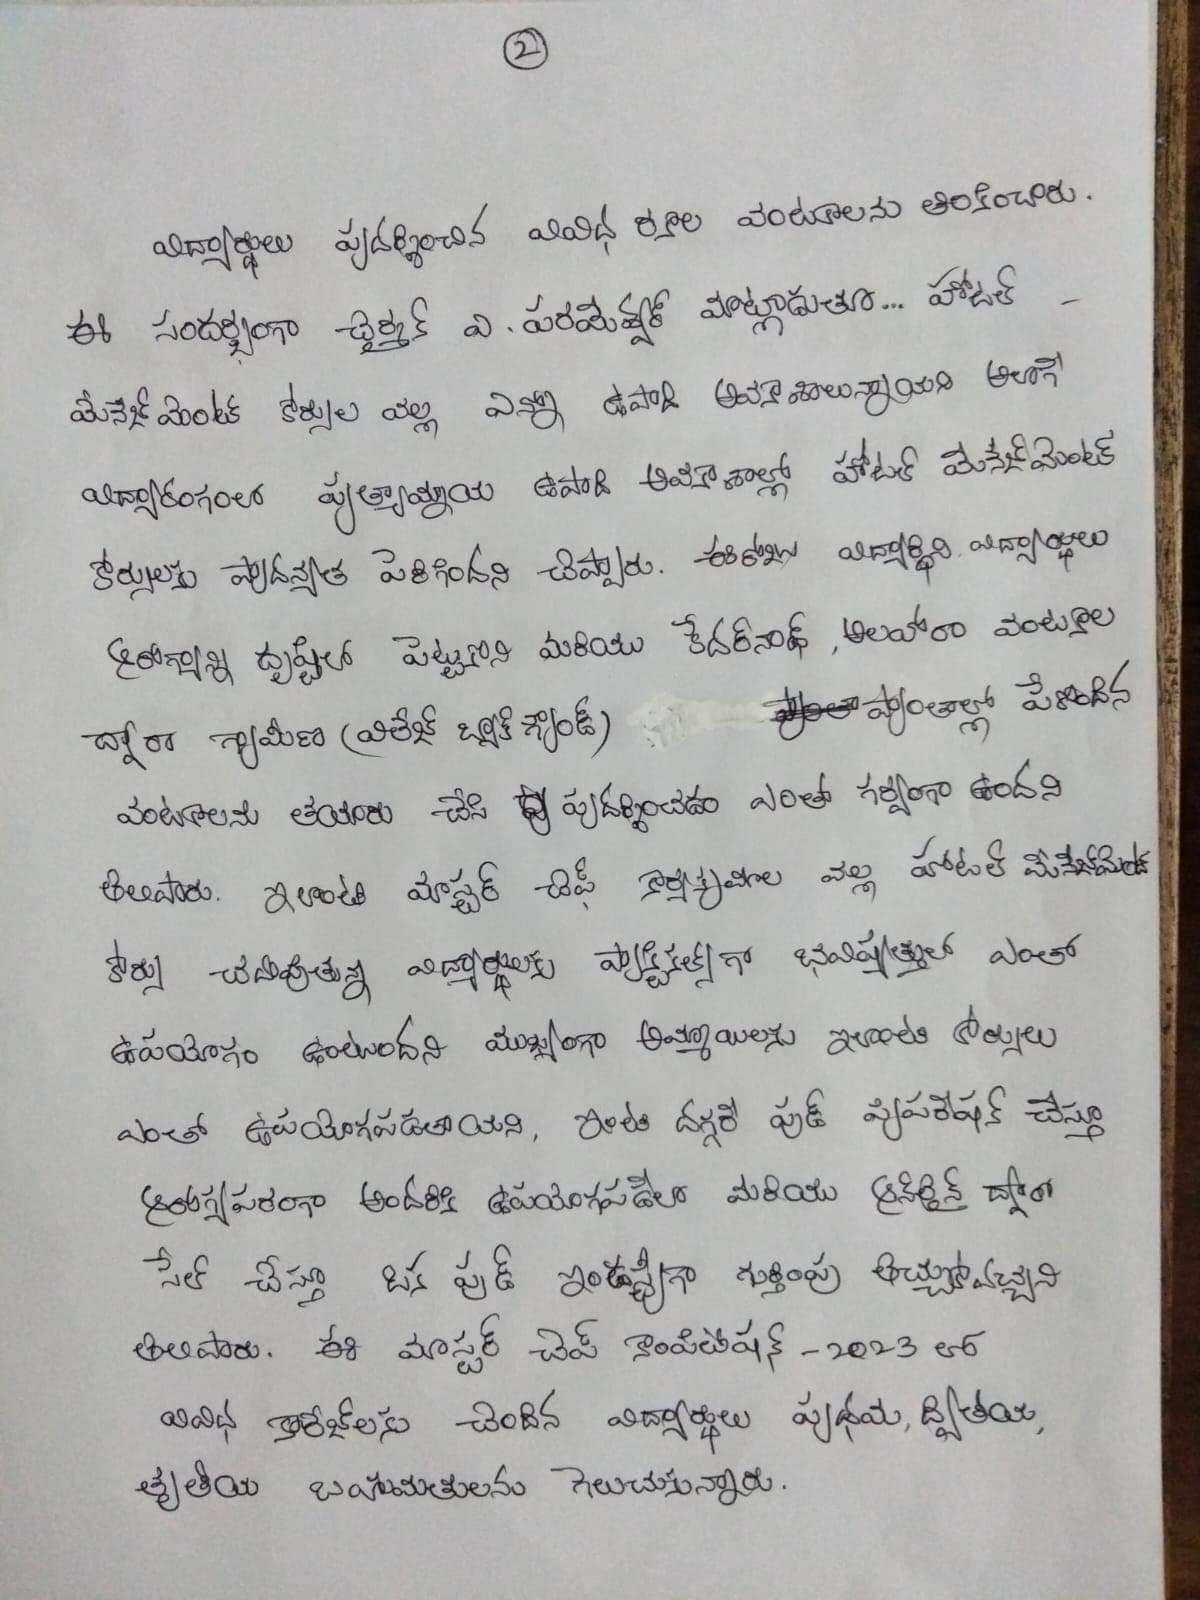 2
విద్యార్థులు ప్రదర్శించిన వివిధ రకాల వంటకాలను తిలకించారు.
ఈ సందర్భంగా ఛైర్మన్ ఎ. పరమేష్వర్ మాట్లాడుతూ... హోటల్ -
మేనేజ్ మెంట్ కోర్సుల వల్ల ఎన్నో ఉపాధి అవకాశాలున్నాయని అలాగే
విద్యారంగంలో ప్రత్యామ్నాయ ఉపాధి అవకాశాల్లో హోటల్ మేనేజ్ మెంట్
కోర్సులకు ప్రాధాన్యత పెరిగిందని చెప్పారు. ఈరోజు విద్యార్థిని, విద్యార్థులు
ఆరోగ్యాన్ని దృష్టిలో పెట్టుకొని మరియు కేదర్ నాథ్, అలహోరా వంటకాల
ద్వారా గ్రామీణ (విలేజ్ బ్యాక్ గ్రౌండ్) ప్రాంతాల్లో పేరొందిన
వంటకాలను తయారు చేసి ప్రదర్శించడం ఎంతో గర్వంగా ఉందని
తెలిపారు. ఇలాంటి మాస్టర్ చెఫ్ కార్యక్రమాల వల్ల హోటల్ మేనేజ్ మెంట్
కోర్సు చదివుతున్న విద్యార్థులకు ప్రాక్టికల్స్ గా భవిష్యత్తులో ఎంతో
ఉపయోగం ఉంటుందని ముఖ్యంగా అమ్మాయిలకు ఇలాంటి కోర్సులు
ఎంతో ఉపయోగపడతాయని, ఇంటి దగ్గరే ఫుడ్ ప్రిపరేషన్ చేస్తూ
ఆరోగ్యపరంగా అందరికి ఉపయోగపడేలా మరియు ఆన్ లైన్ ద్వారా
సేల్ చేస్తూ ఒక ఫుడ్ ఇండస్ట్రీగా గుర్తింపు తెచ్చుకోవచ్చని
తెలిపారు. ఈ మాస్టర్ చెఫ్ కాంపిటేషన్ - 2023 లో
వివిధ కాలేజ్ లకు చెందిన విద్యార్థులు ప్రథమ, ద్వితీయ,
తృతీయ బహుమతులను గెలుచుకున్నారు.